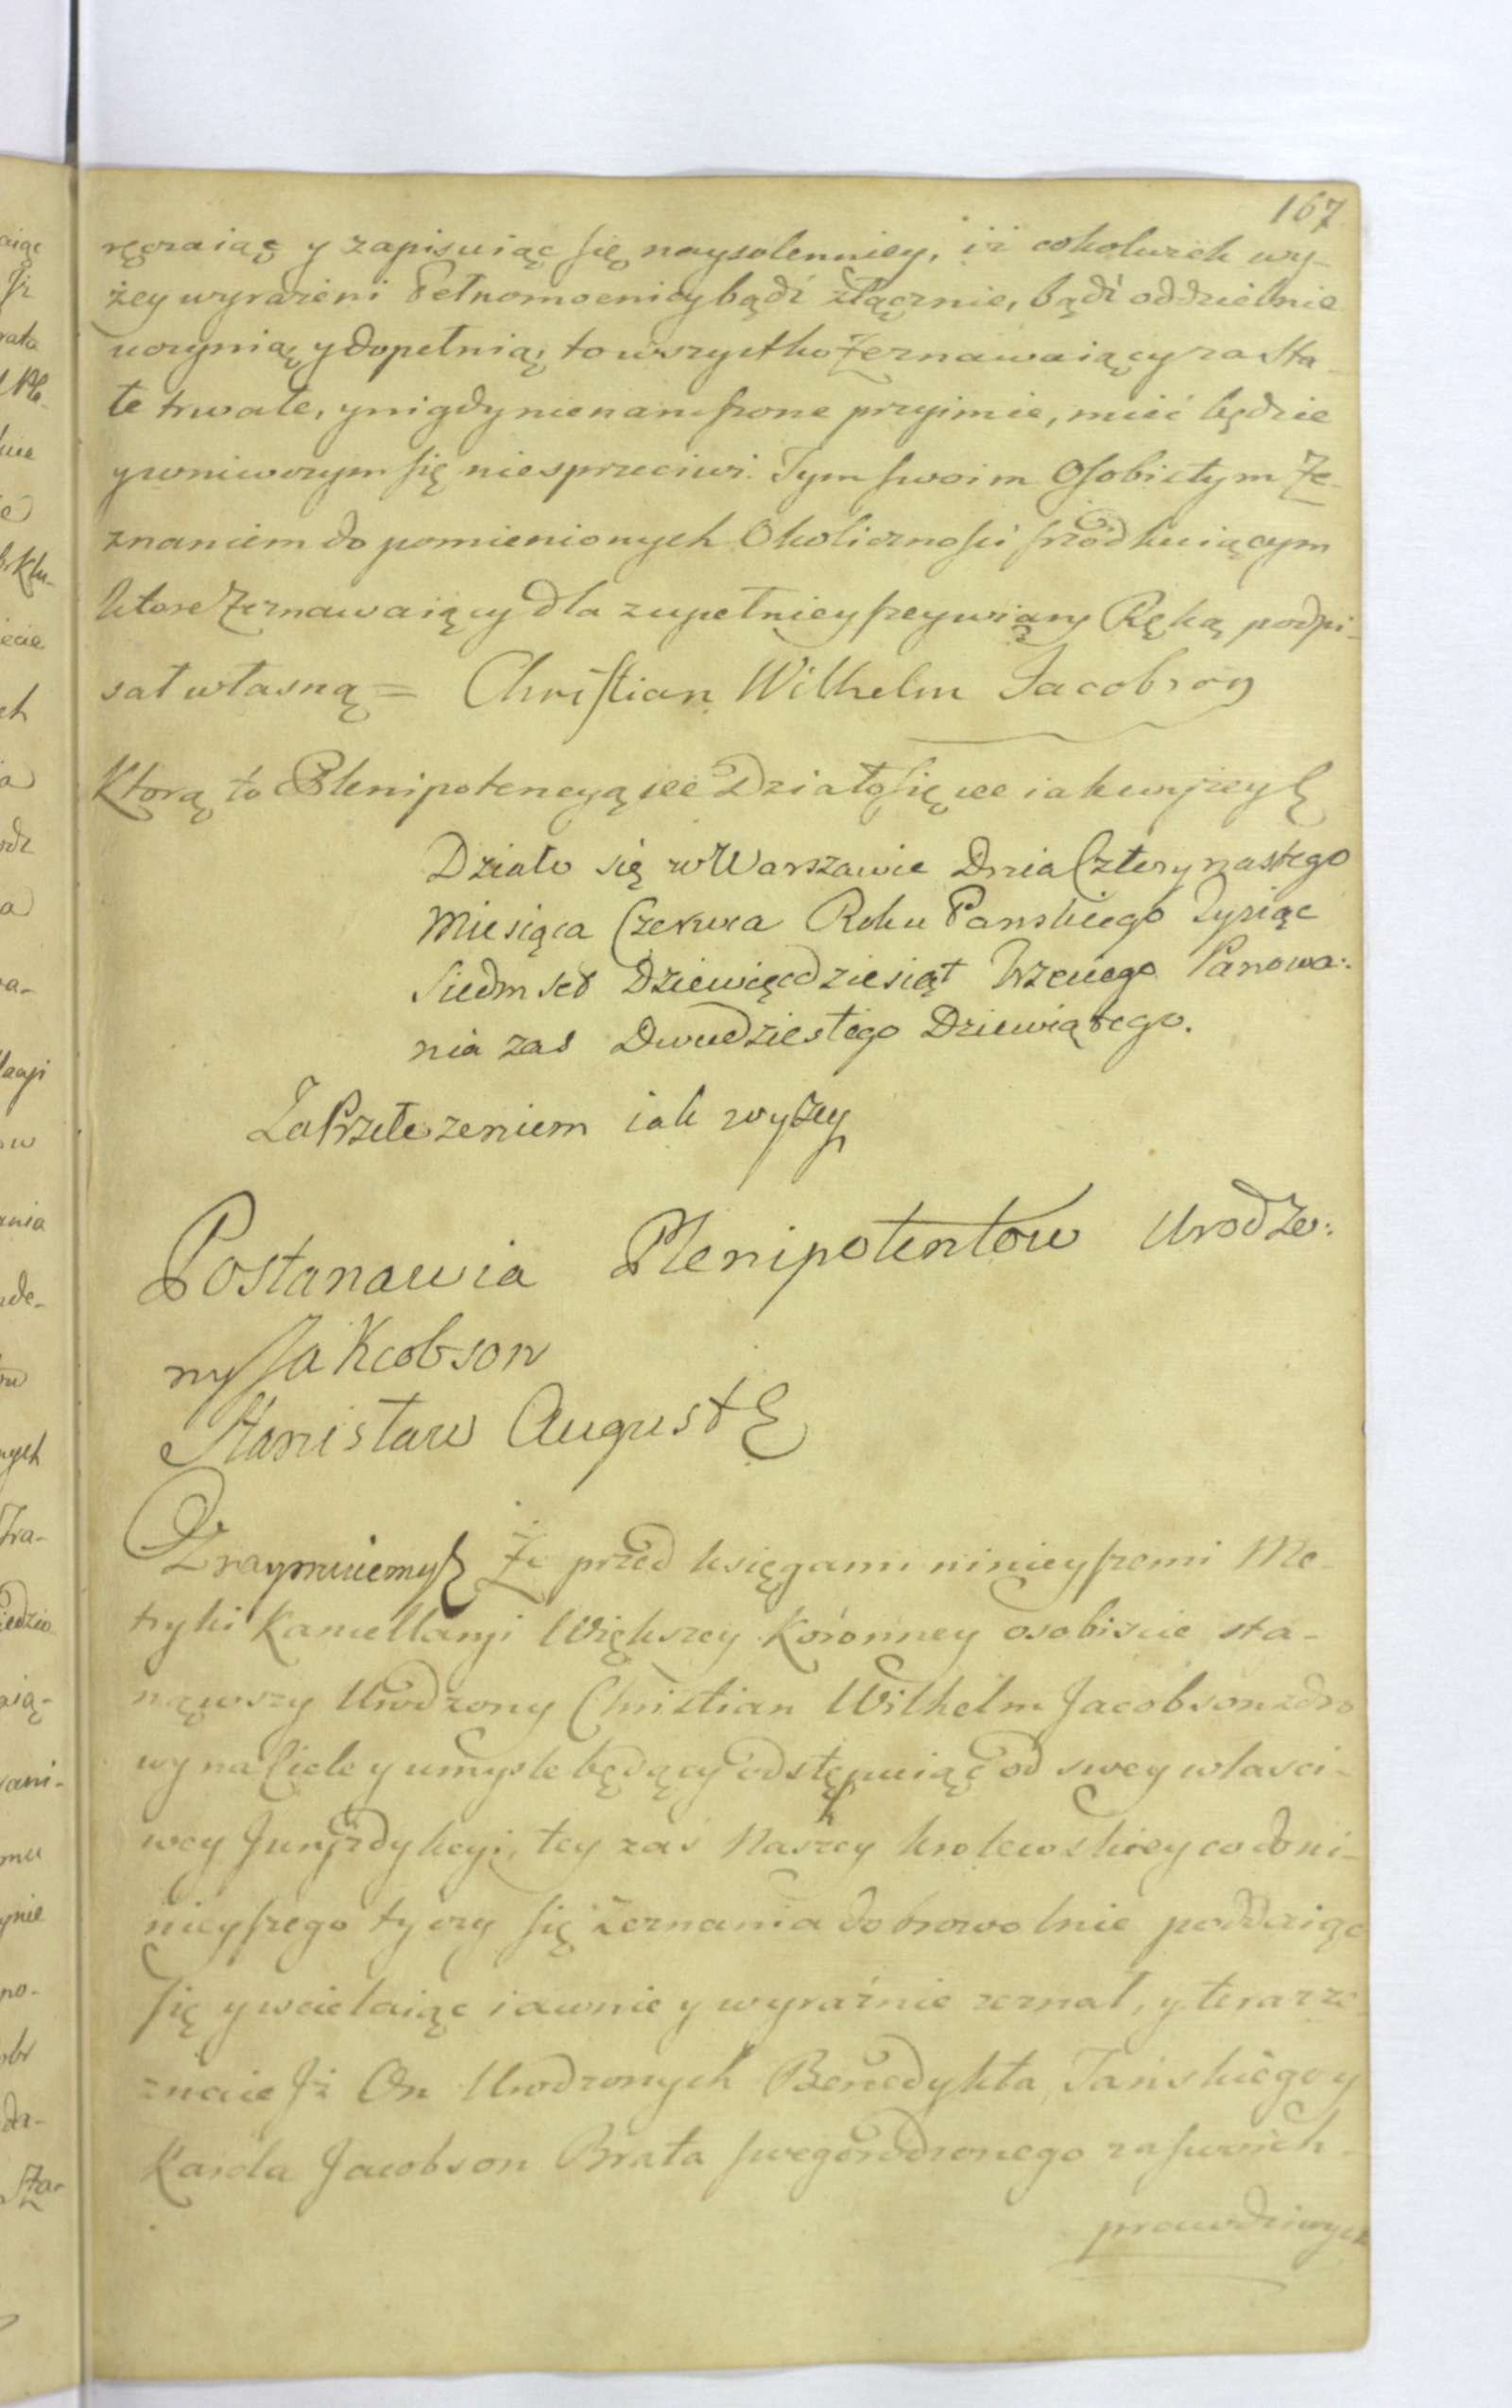 167
ręczaiąc y zapisuiąc się naysolenniey, iż cokolwiek wy-
żey wyrażeni Pełnomocnicy bądź złącznie, bądź oddzielnie
uczynią y dopełnią; to wszystko Zeznawaiący za sta-
łe trwałe, y nigdy nienaruszone przyimie, mieć będzie
y w niwczym się niesprzeciwi. Tym swoim Osobistym Ze-
znaniem do pomienionych Okolicznosci
które Zeznawaiący dla zupełniey szey wiary Ręką podpi-
sał własną = Christian Wilhelm Jacobson
Którą to Plenipotencyą etc Działo się etc iak wyżey
Działo się w Warszawie Dnia Czternastego
Miesiąca Czerwca Roku Panskiego Tysiąc
Siedmset Dziewięcdziesiąt Trzeciego Panowa:
nia zas Dwudziestego Dziewiątego.
Za Przełozeniem iak wyżey
Postanawia Plenipotentow Urodzo:
ny Jakcobson
Stanisław August
Oznaymuiemy Ze przed księgami ninieyszemi Me-
tryki Kancellaryi Większey Koronney osobiscie sta-
nąwszy Urodzony Christian Wilhelm Jacobson zdro
wy na Ciele y umysle będący odstępuiąc od swey własci-
wey Juryzdykcyi, tey zas Naszey krolewskiey co do ni-
nieyszego tyczy się Zeznania dobrowolnie poddaiąc
się y wcielaiąc iawnie y wyraźnie zeznał, y teraz ze
znaie Jż On Urodzonych Benedykta Tańskiego y
Karola Jacobson Brata swego rodzonego za swoich
prawdziwych